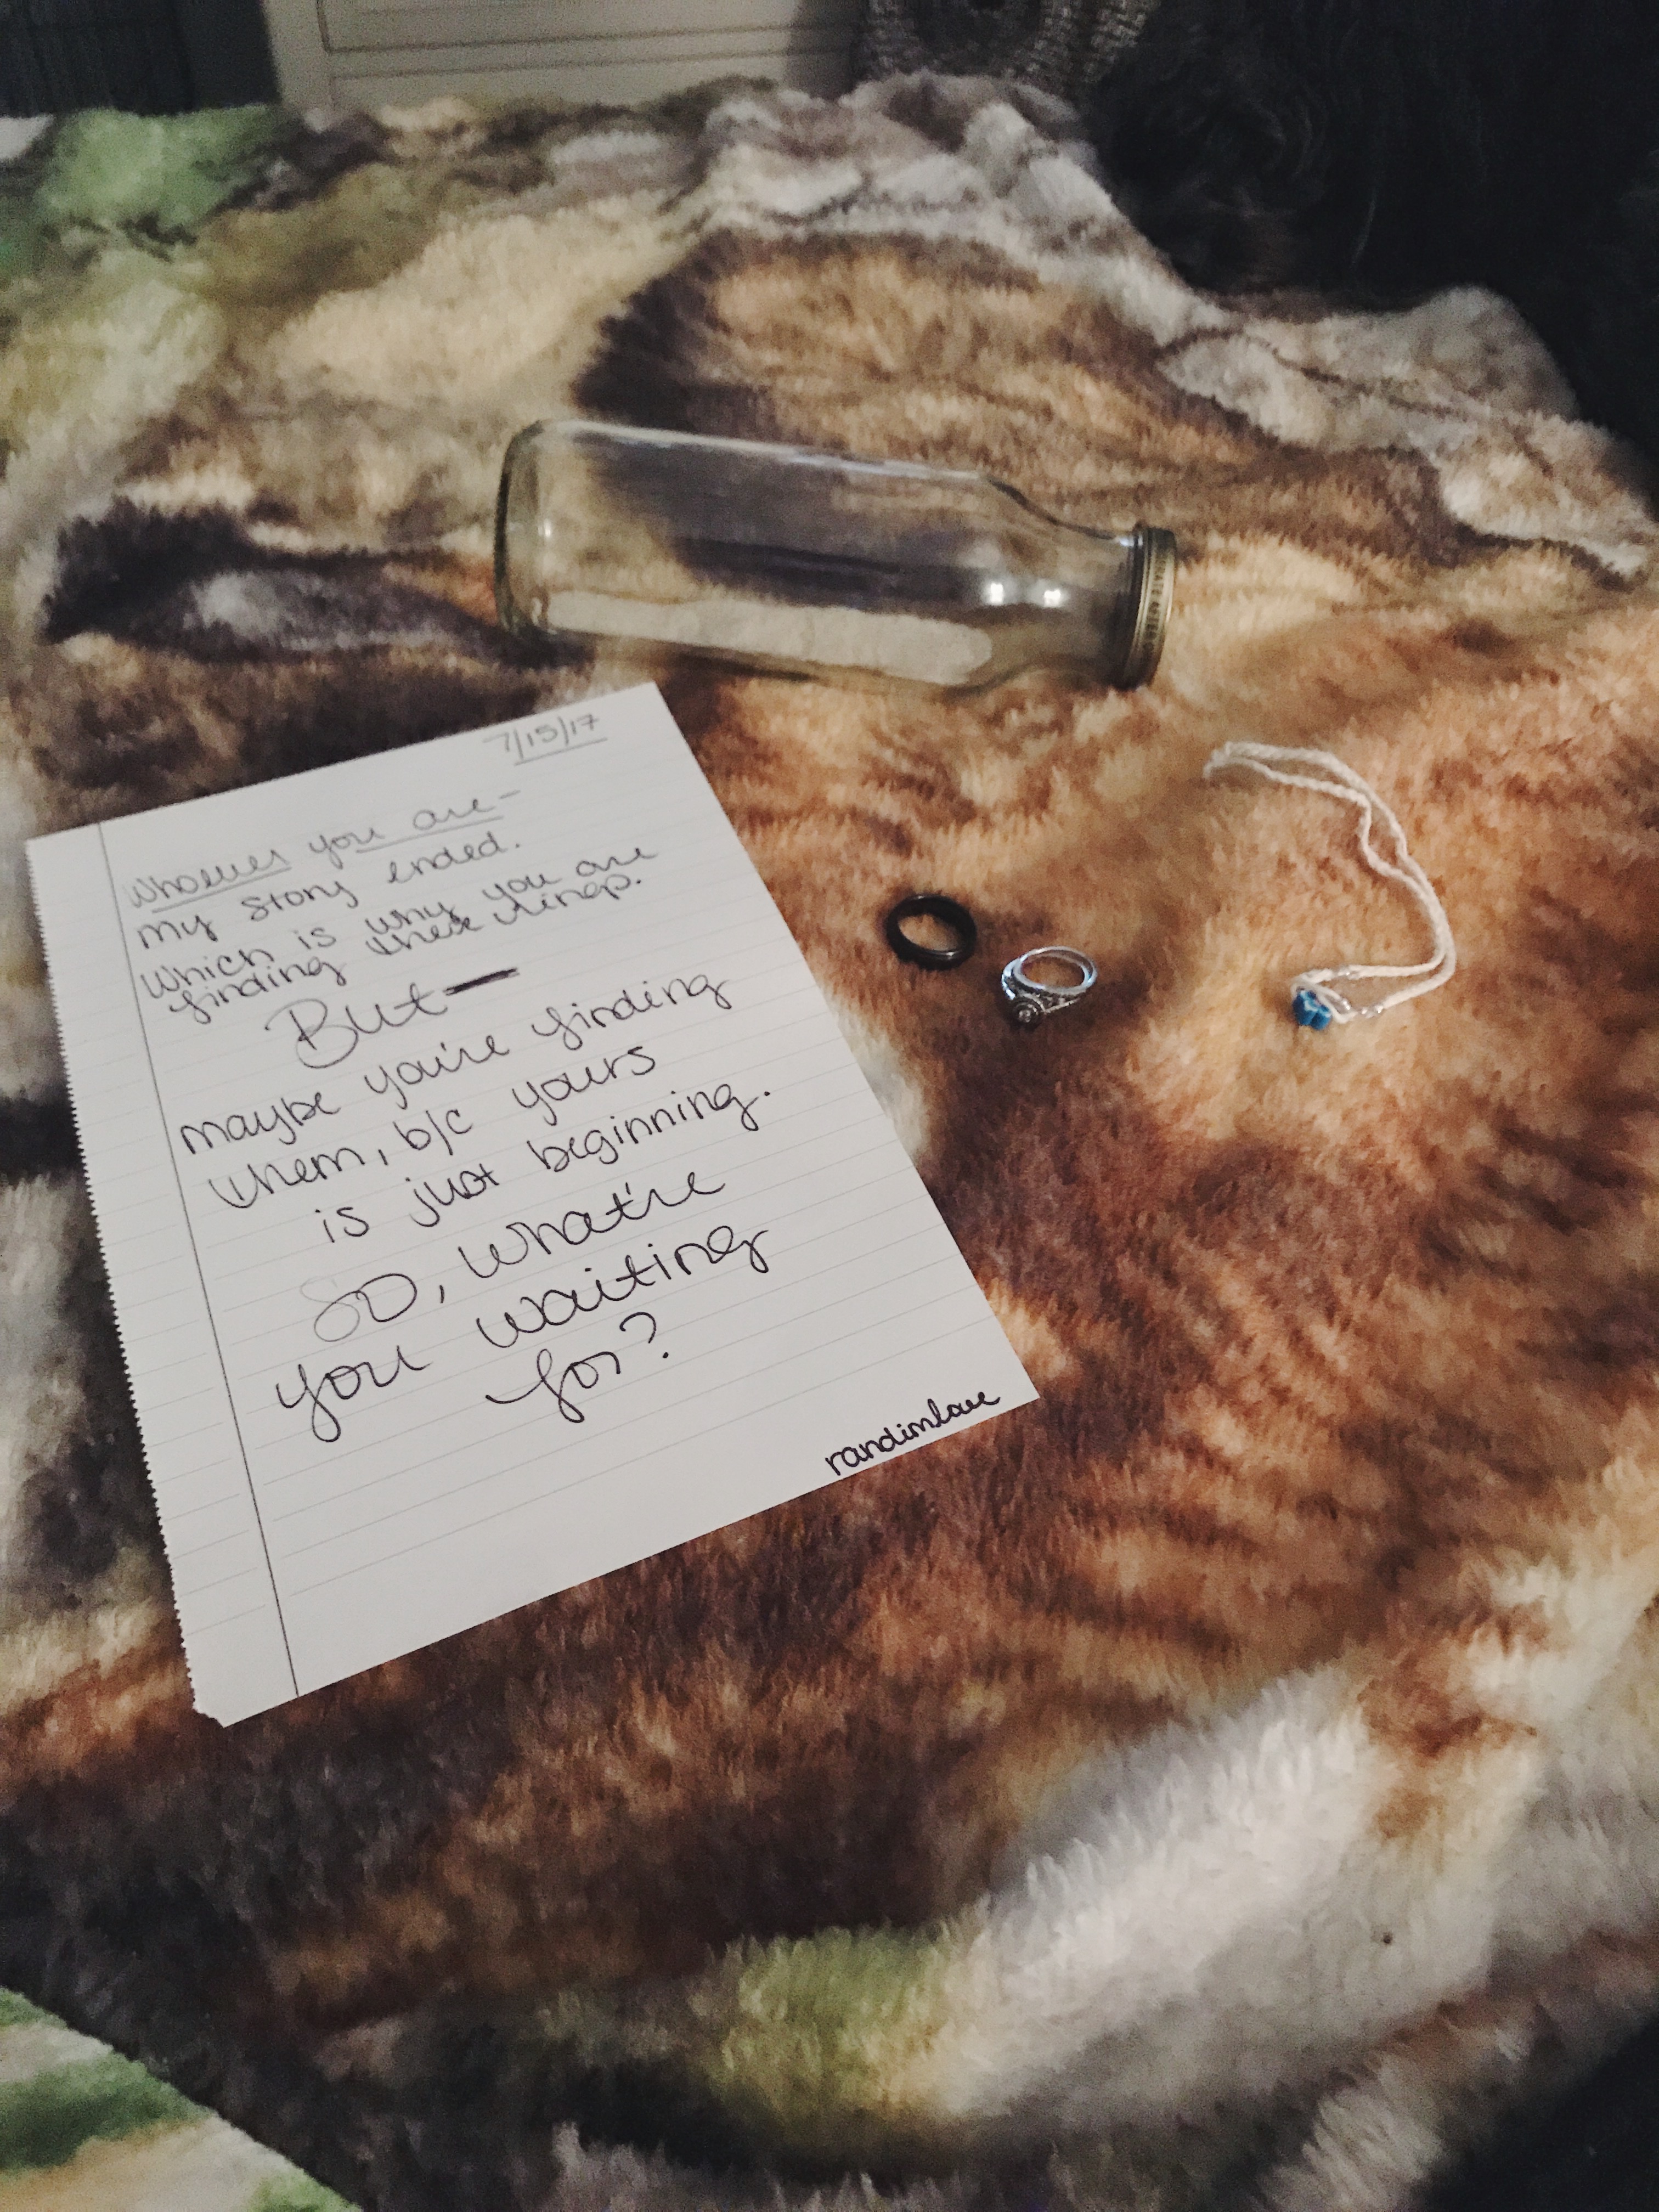 7/15/17
Whoever you are-
My story ended.
Which is why you are
finding these rings.
But-
maybe you're finding
them, b/c yours
is just beginning.
SO, what're
you waiting
for?
randimlove